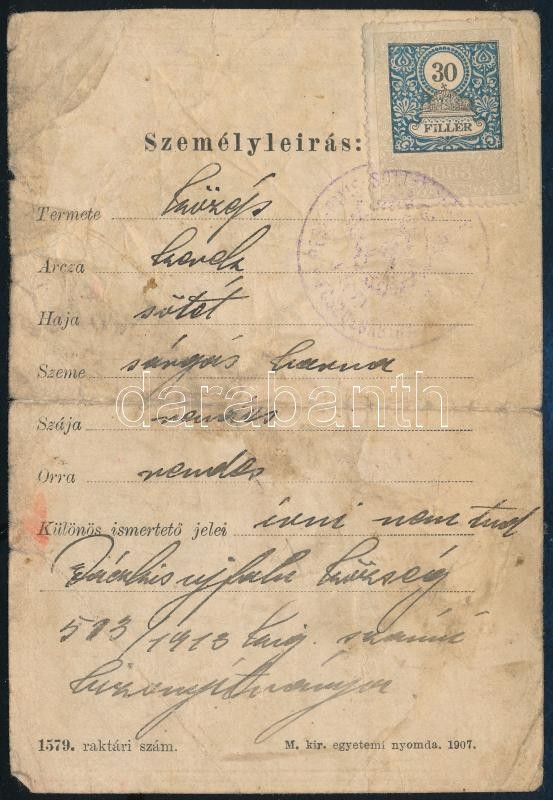 30
FILLÉR
1903
Személyleirás:
Termete közép
Arcza kerek
Haja sötét
Szeme sárgás barna
darabanth
Szája rendes
Orra rendes
Különös ismertető jelei írni nem tud
község
513/1913 kig. számú
bizonyítványa
1579. raktári szám.
M. kir. egyetemi nyomda. 1907.